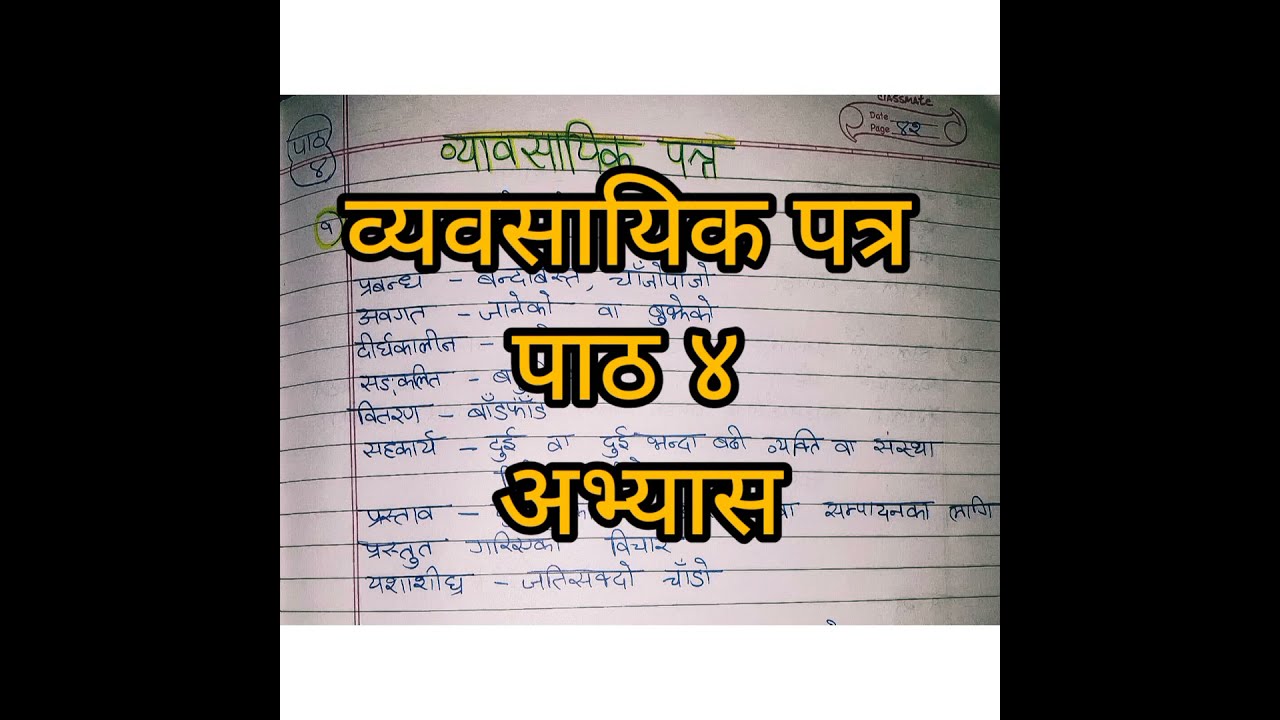 classmate
Date
Page ४२
पाठ
४
व्यावसायिक पत्र
व्यवसायिक पत्र
प्रबन्ध - बन्दोबस्त, चाँजोपाँजो
अवगत - जानेको वा बुझेको
दीर्घकालीन -
पाठ ४
सङ्कलित -
वितरण - बाँडफाँड
सहकार्य - दुई वा दुई भन्दा बढी व्यक्ति वा संस्था
अभ्यास
प्रस्ताव - सम्पादनका लागि
प्रस्तुत गरिएको विचार
यशाशीघ्र - जतिसक्दो चाँडो